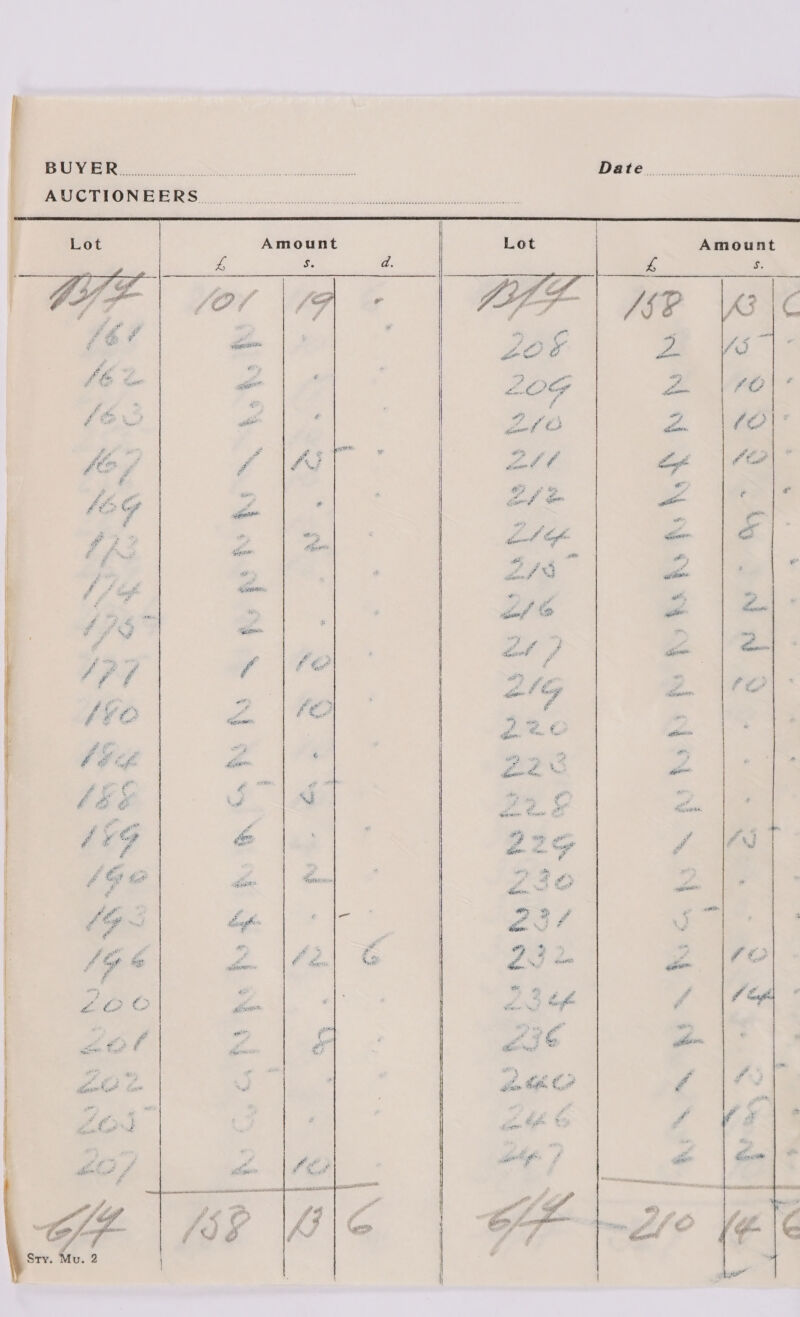 BUYER Date
AUCTIONEERS
Lot Amount Lot Amount
£ s. d. £ s.
B/f 101 19 · B/f 158 13 6
161 2 · · 208 2 15 -
162 2 · · 209 2 10 ·
163 2 · · 210 2 10 ·
167 1 15 · 211 4 10 ·
169 2 · · 212 2 · ·
173 2 2 · 214 2 8 ·
174 2 · · 215 2 · ·
175 2 · · 216 2 2 ·
177 1 10 · 217 2 2 ·
180 2 10 · 219 2 10 ·
184 2 · · 220 2 · ·
188 5 5 223 2 · ·
189 6 · · 228 2 ·
190 2 2 · 229 1 15
193 4 · - 230 2 ·
196 2 12 6 231 5 ·
200 2 · · 232 2 10
201 2 8 · 234 1 14 ·
202 5 236 2 · ·
205 3 · · 240 1 15
207 2 10 · 246 1 18 ·
247 2 2 ·
C/f 158 13 6 C/f 210 14 6
STY. MU. 2